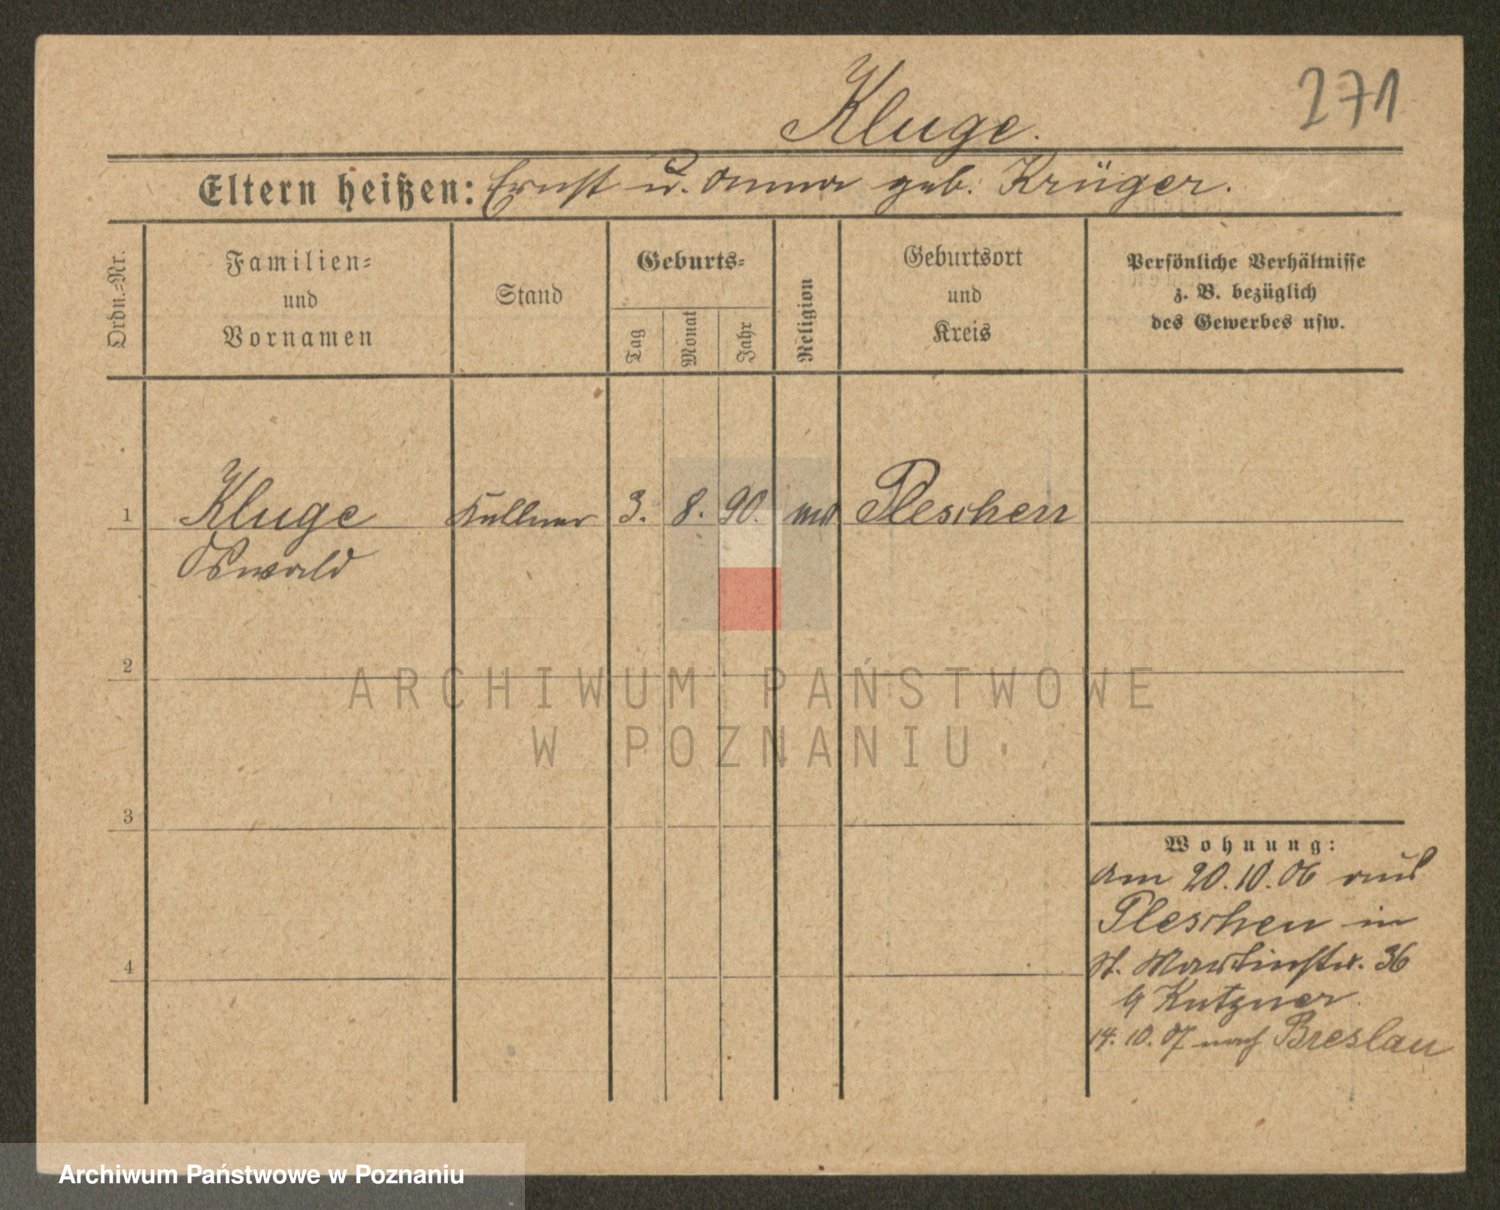 271
Kluge.
Eltern heißen: Ernst u. Anna geb. Krüger.
Ordn.-Nr.
Familien-
und
Vornamen
Stand
Geburts-
Tag
Monat
Jahr
Religion
Geburtsort
und
Kreis
Persönliche Verhältnisse
z. B. bezüglich
des Gewerbes usw.
1 Kluge Kellner 3. 8. 90. Pleschen
Oswald
2
ARCHIWUM PAŃSTWOWE
W POZNANIU
3
Wohnung:
am 20.10.06 aus
Pleschen in
4
St. Martinstr. 36
Kutzner
14.10.07 nach Breslau
Archiwum Państwowe w Poznaniu